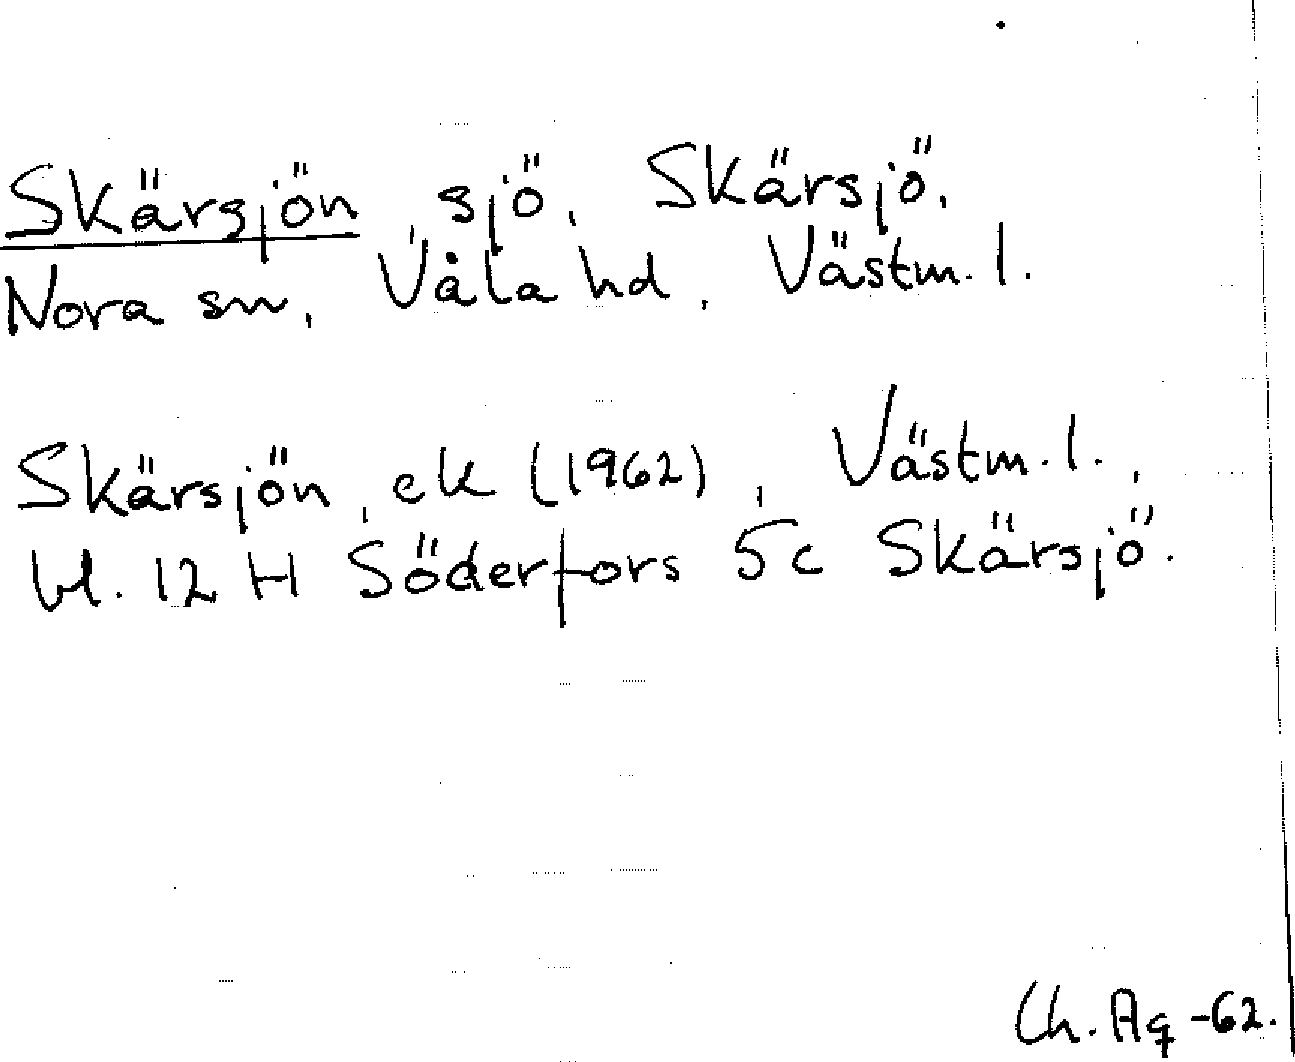 Skärsjön, sjö, Skärsjö,
Nora sn, Våla hd, Västm. l.
Skärsjön, ek (1962), Västm. l.,
bl. 12 H Söderfors 5c Skärsjö.
Ch. Aq -62.